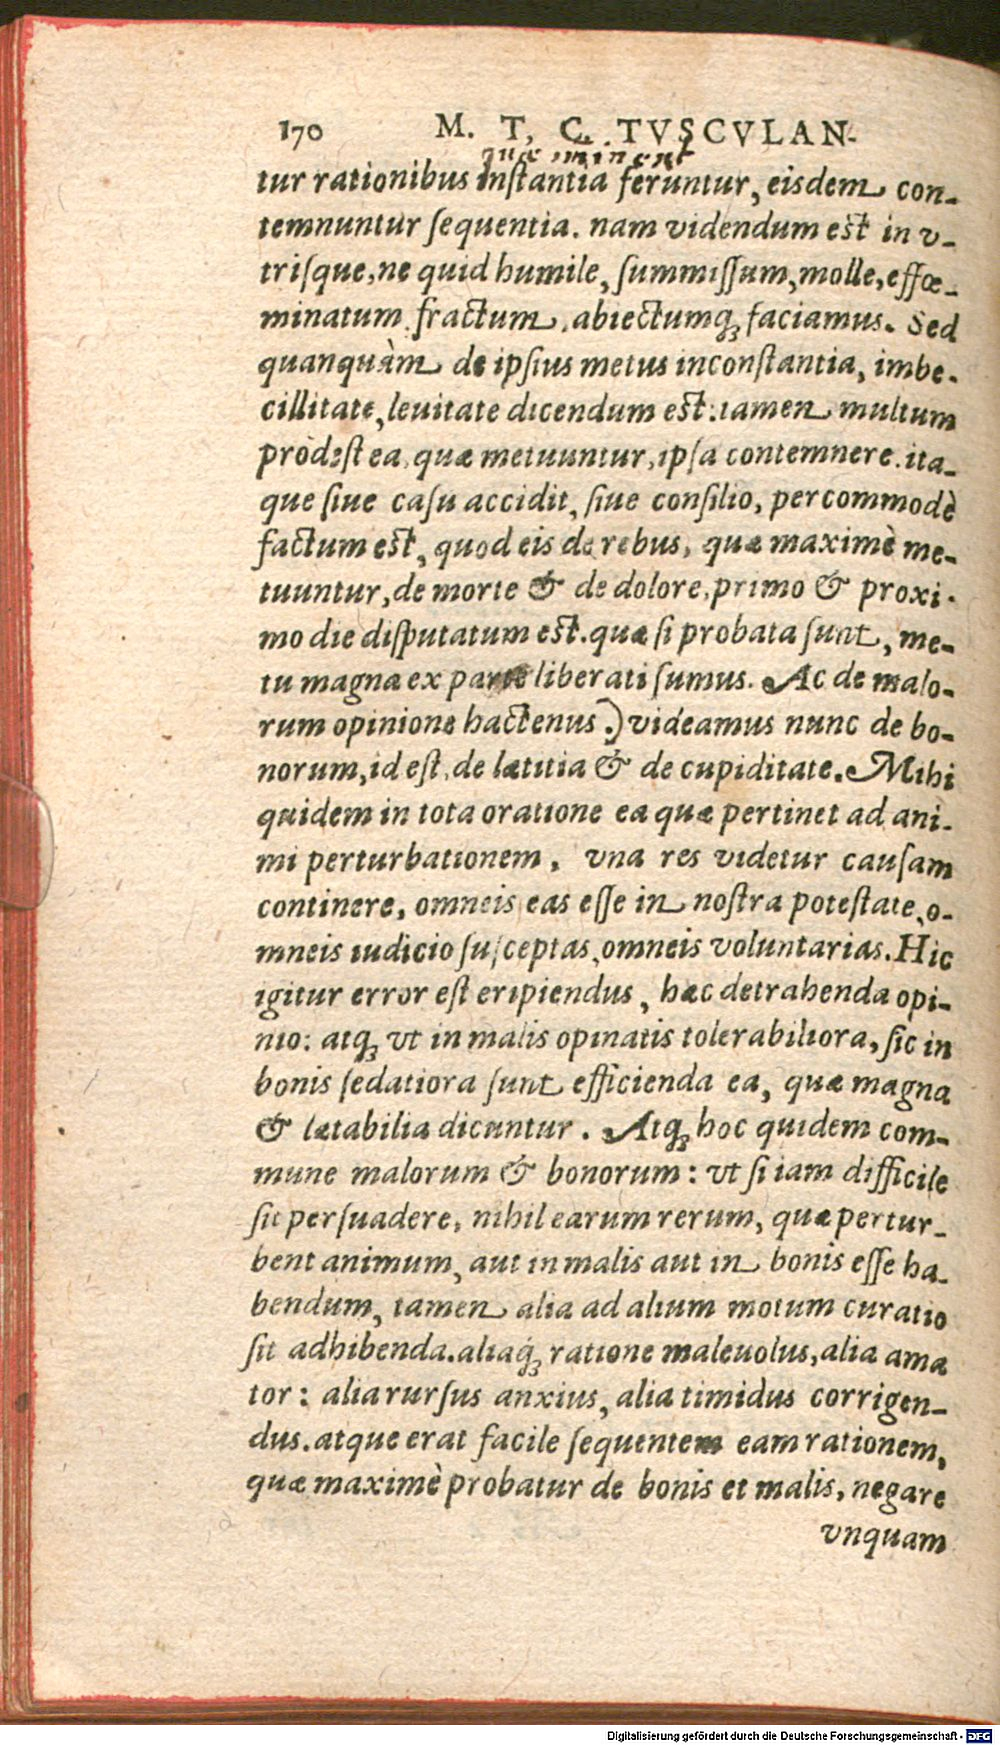 170 M. T. C. TVSCVLAN-
quæ iminent
tur rationibus inſtantia feruntur, eisdem con-
temnuntur ſequentia. nam videndum eſt in v-
triſque, ne quid humile, ſummiſſum, molle, effœ-
minatum fractum, abiectumq; faciamus. Sed
quanquàm de ipſius metus inconſtantia, imbe-
cillitate, leuitate dicendum eſt: tamen multum
prodeſt ea, quæ metuuntur, ipſa contemnere. ita-
que ſiue caſu accidit, ſiue conſilio, percommodè
factum eſt, quod eis de rebus, quæ maximè me-
tuuntur, de morte & de dolore, primo & proxi-
mo die diſputatum eſt. quæ ſi probata ſunt, me-
tu magna ex parte liberati ſumus. Ac de malo-
rum opinione hactenus.) videamus nunc de bo-
norum, id eſt, de lætitia & de cupiditate. Mihi
quidem in tota oratione ea quæ pertinet ad ani-
mi perturbationem, vna res videtur cauſam
continere, omneis eas eſſe in noſtra poteſtate, o-
mneis iudicio ſuſceptas, omneis voluntarias. Hic
igitur error eſt eripiendus, hæc detrahenda opi-
nio: atq; vt in malis opinatis tolerabiliora, ſic in
bonis ſedatiora ſunt efficienda ea, quæ magna
& lætabilia dicuntur. Atq; hoc quidem com-
mune malorum & bonorum: vt ſi iam difficile
ſit perſuadere, nihil earum rerum, quæ pertur-
bent animum, aut in malis aut in bonis eſſe ha-
bendum, tamen alia ad alium motum curatio
ſit adhibenda. aliaq́; ratione maleuolus, alia ama
tor: alia rurſus anxius, alia timidus corrigen-
dus. atque erat facile ſequentem eam rationem,
quæ maximè probatur de bonis et malis, negare
vnquam
Digitalisierung gefördert durch die Deutsche Forschungsgemeinschaft - DFG